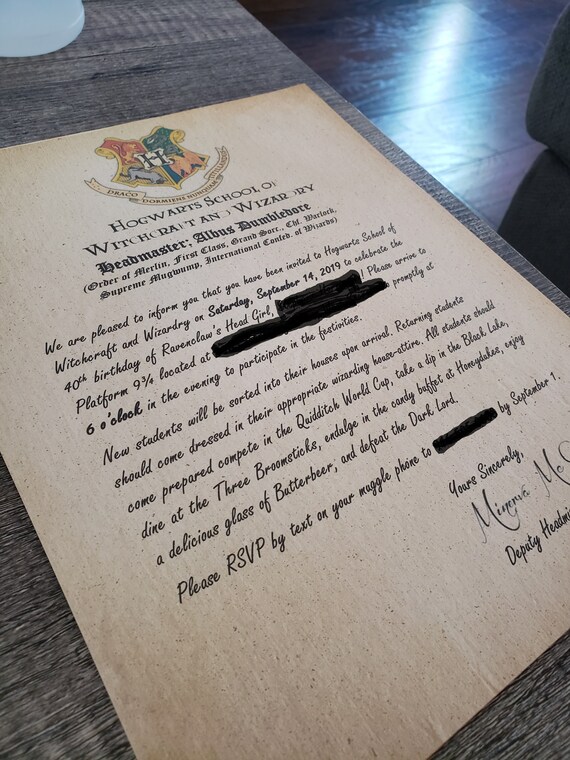 H
DRACO DORMIENS NUNQUAM
HOGWARTS SCHOOL OF
WITCHCRAFT AND WIZARDRY
Headmaster; Albus Dumbledore
(Order of Merlin, First Class, Grand Sorc., Chf. Warlock,
Supreme Mugwump, International Confed. of Wizards)
We are pleased to inform you that you have been invited to Hogwarts School of
Witchcraft and Wizardry on Saturday, September 14, 2019 to celebrate the
40th birthday of Ravenclaw's Head Girl, Please arrive to
Platform 9¾ located at promptly at
6 o'clock in the evening to participate in the festivities.
New students will be sorted into their houses upon arrival. Returning students
should come dressed in their appropriate wizarding house-attire. All students should
come prepared compete in the Quidditch World Cup, take a dip in the Black Lake,
dine at the Three Broomsticks, endulge in the candy buffet at Honeydukes, enjoy
a delicious glass of Butterbeer, and defeat the Dark Lord.
Please RSVP by text on your muggle phone to by September 1.
Yours Sincerely,
Deputy